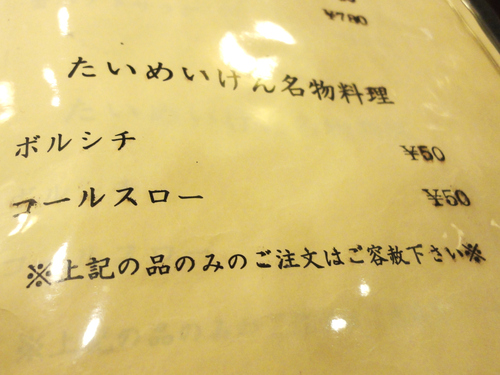 ¥780
たいめいけん名物料理
ボルシチ ¥50
コールスロー ¥50
※上記の品のみのご注文はご容赦下さい※